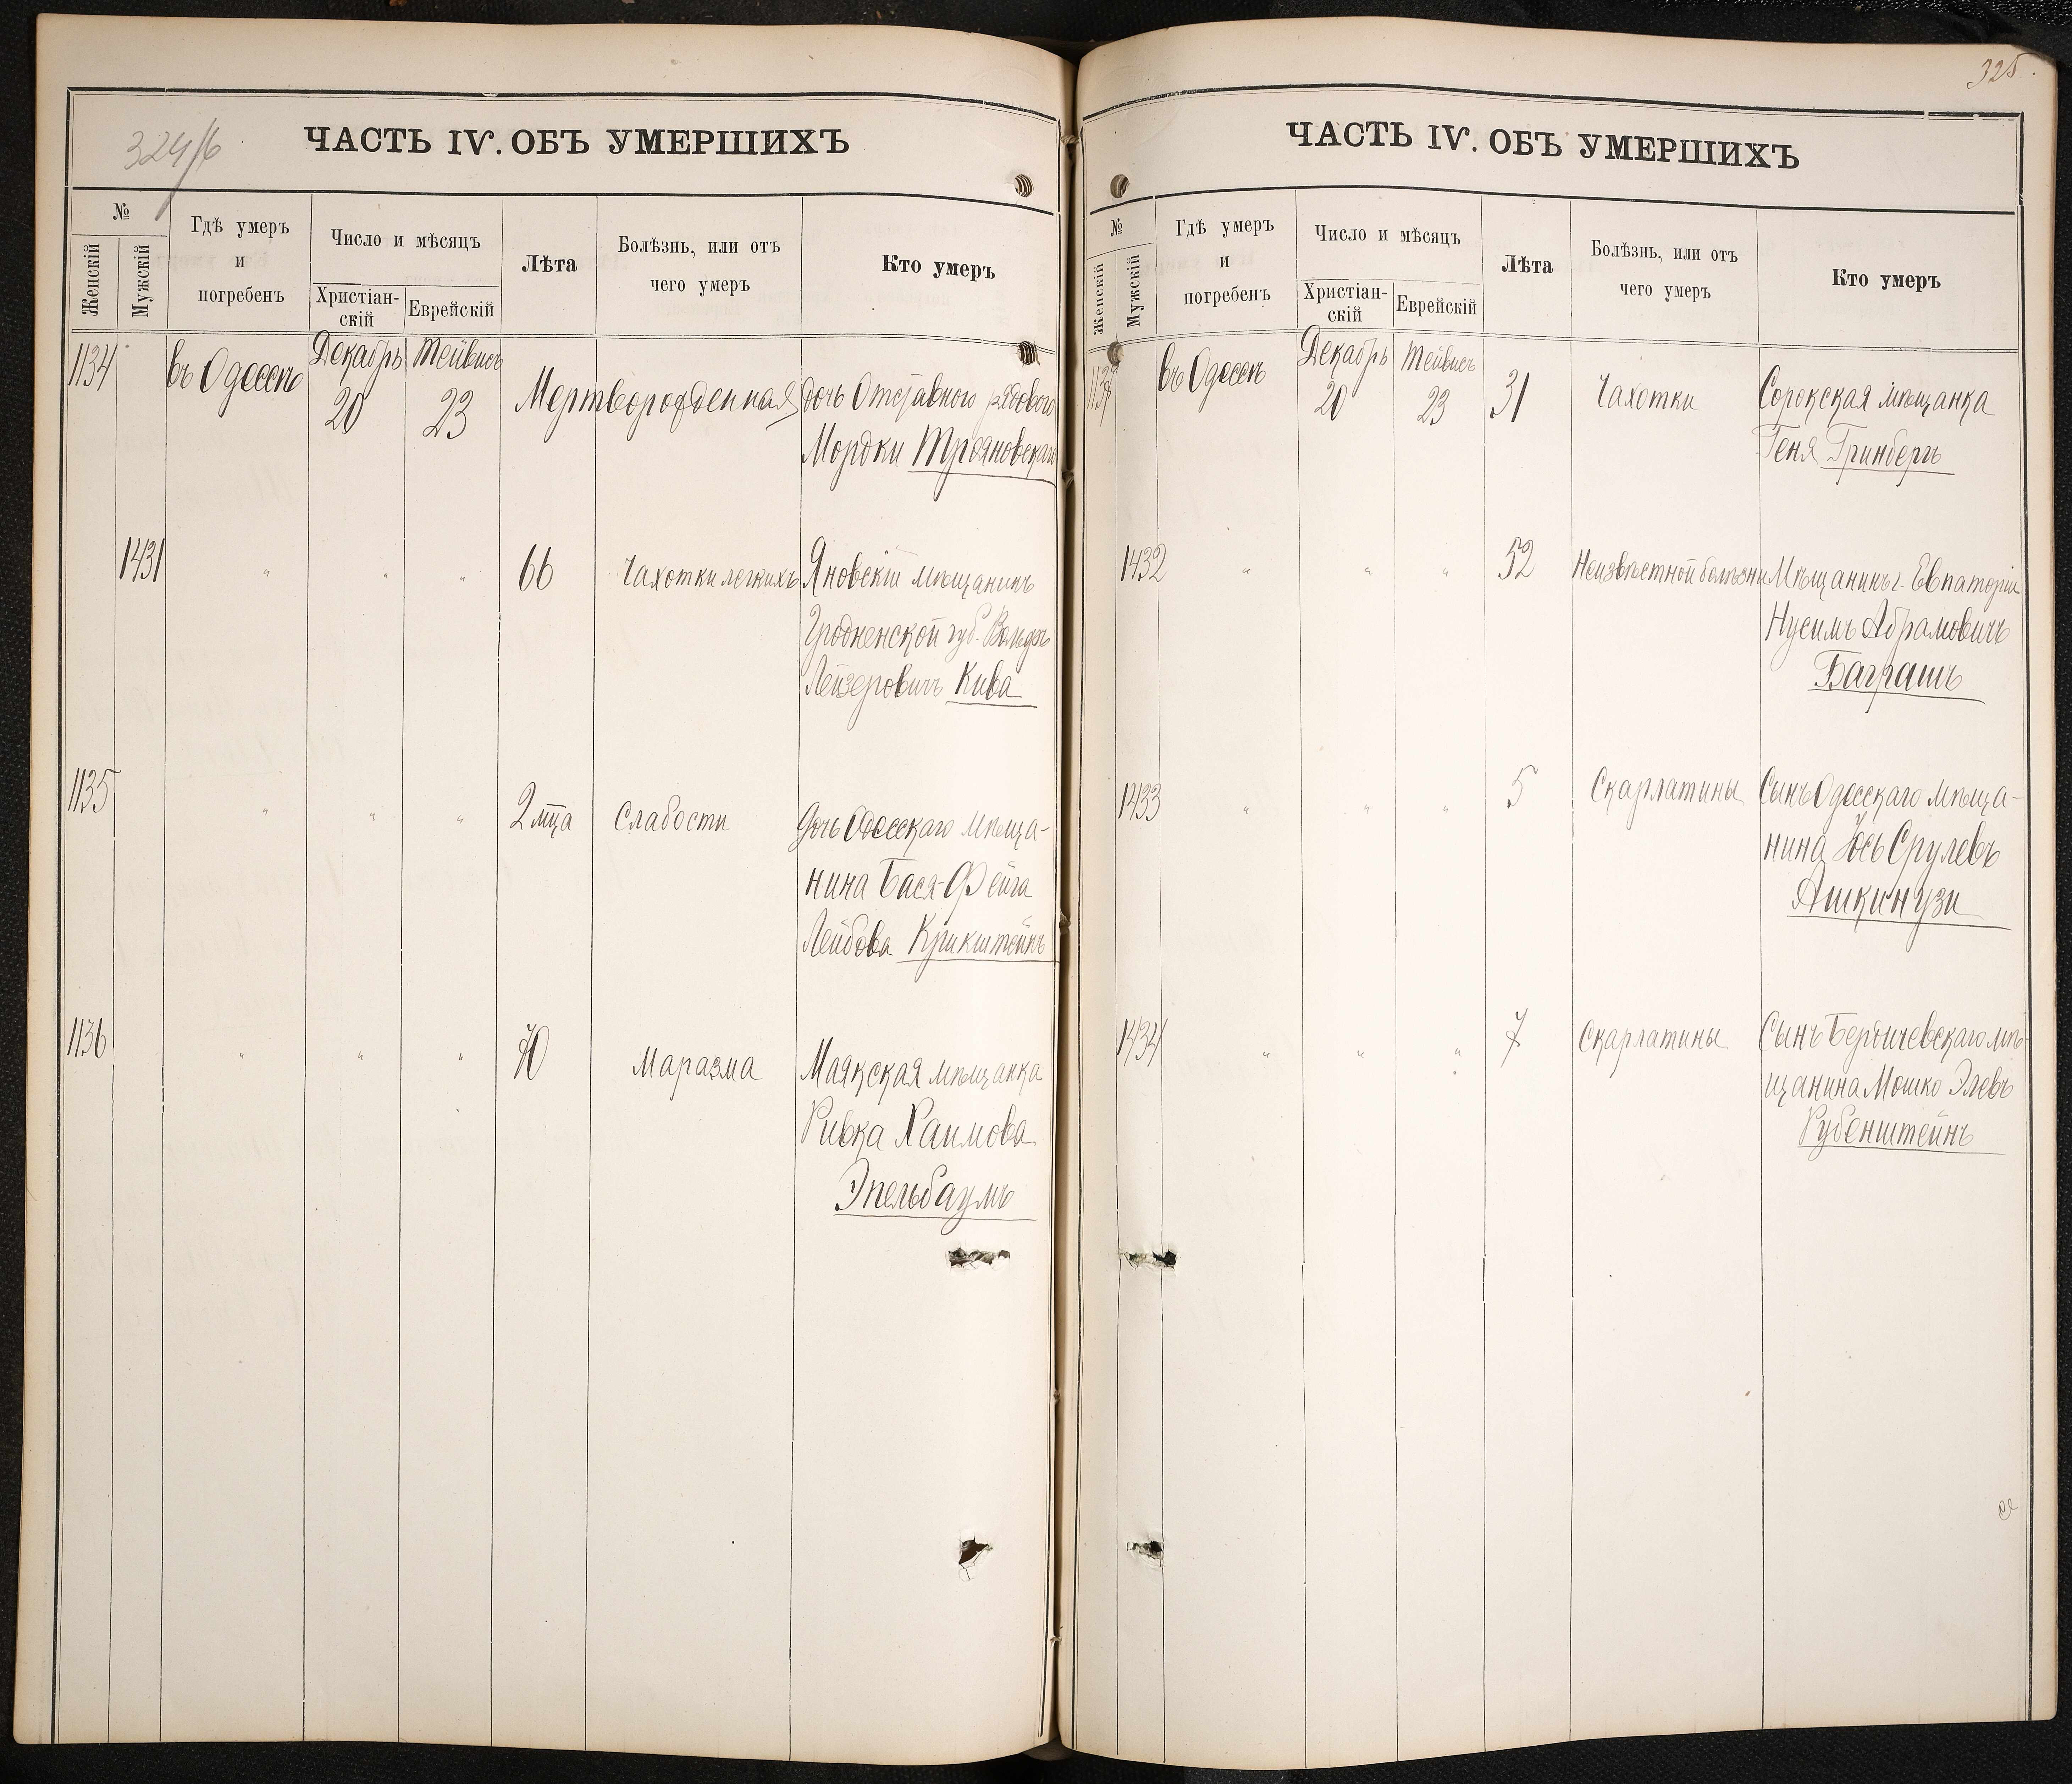 324/б
ЧАСТЬ IV. ОБЪ УМЕРШИХЪ
№
Женскій
Мужскій
Гдѣ умеръ
и
погребенъ
Число и мѣсяцъ
Христіан-
скій
Еврейскій
Лѣта
Болѣзнь, или отъ
чего умеръ
Кто умеръ
1134 въ Одессѣ Декабрь 20 Тейвись 23 Мертворожденная дочь Отставного рядового
Мордки Трояновскаго
1431 " " " 66 Чахотки легкихъ Яновскій мѣщанинъ
Гродненской губ. Вольфъ
Лейзеровичъ Кива
1135 " " " 2 мца Слабости Дочь Одесскаго мѣща-
нина Бася-Фейга
Лейбова Крикштейнъ
1136 " " " 70 Маразма Маякская мѣщанка
Ривка Хаимова
Эпельбаумъ
325.
ЧАСТЬ IV. ОБЪ УМЕРШИХЪ
№
Женскій
Мужскій
Гдѣ умеръ
и
погребенъ
Число и мѣсяцъ
Христіан-
скій
Еврейскій
Лѣта
Болѣзнь, или отъ
чего умеръ
Кто умеръ
1137 въ Одессѣ Декабрь 20 Тейвись 23 31 Чахотки Сорокская мѣщанка
Геня Гринбергъ
1432 " " " 52 Неизвѣстной болѣзни Мѣщанинъ г. Евпаторіи
Нусимъ Абрамовичъ
Баграшъ
1433 " " " 5 Скарлатины Сынъ Одесскаго мѣща-
нина Юсь Срулевъ
Ашкинузи
1434 " " " 7 Скарлатины Сынъ Бердичевскаго мѣ-
щанина Мошко Элевъ
Рубенштейнъ